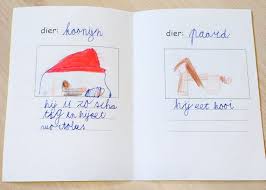 dier: konijn
hij is zo scha
tig en hij eet
wortolus
dier: paard
hij eet hooi